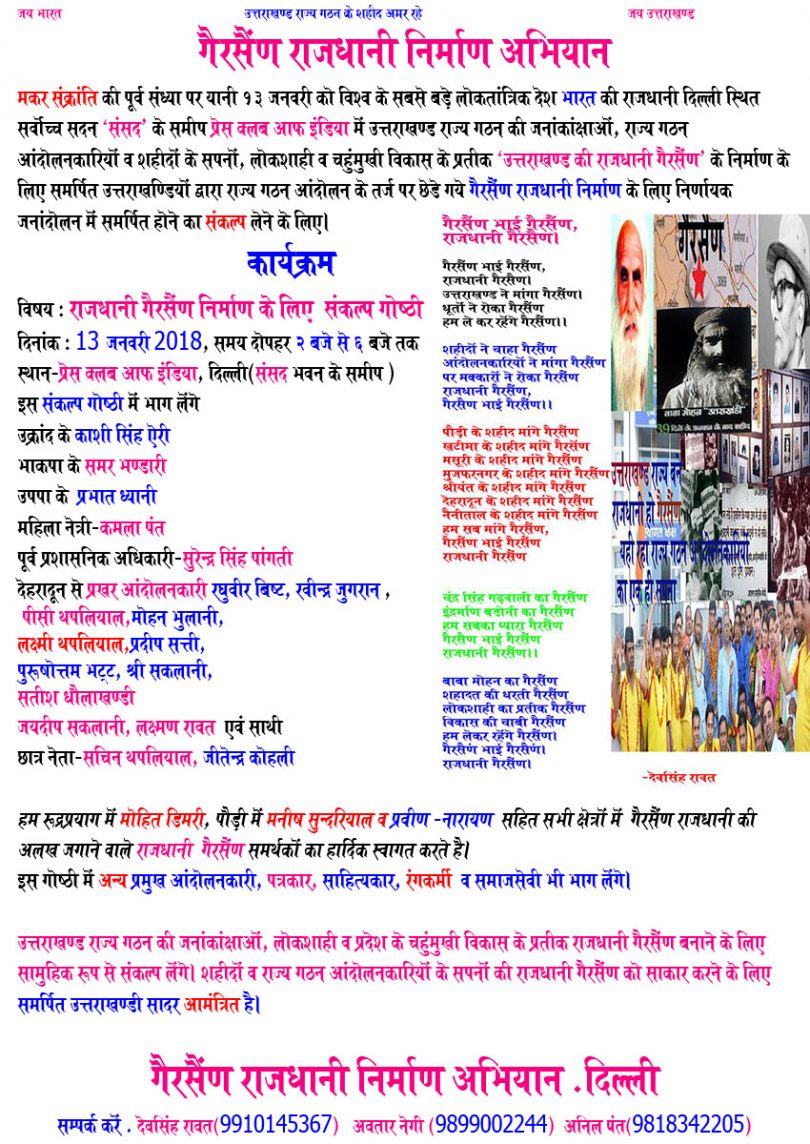 जय भारत उत्तराखण्ड राज्य गठन के शहीद अमर रहे जय उत्तराखण्ड
गैरसैंण राजधानी निर्माण अभियान
मकर संक्रांति की पूर्व संध्या पर यानी १३ जनवरी को विश्व के सबसे बड़े लोकतांत्रिक देश भारत की राजधानी दिल्ली स्थित
सर्वोच्च सदन ‘संसद’ के समीप प्रेस क्लब आफ इंडिया में उत्तराखण्ड राज्य गठन की जनांकांक्षाओं, राज्य गठन
आंदोलनकारियों व शहीदों के सपनों, लोकशाही व चहुंमुखी विकास के प्रतीक ‘उत्तराखण्ड की राजधानी गैरसैंण’ के निर्माण के
लिए समर्पित उत्तराखण्डियों द्वारा राज्य गठन आंदोलन के तर्ज पर छेडे गये गैरसैंण राजधानी निर्माण के लिए निर्णायक
जनांदोलन में समर्पित होने का संकल्प लेने के लिए।
कार्यक्रम
विषय : राजधानी गैरसैंण निर्माण के लिए संकल्प गोष्ठी
दिनांक : 13 जनवरी 2018, समय दोपहर २ बजे से ६ बजे तक
स्थान-प्रेस क्लब आफ इंडिया, दिल्ली(संसद भवन के समीप )
इस संकल्प गोष्ठी में भाग लेंगे
उक्रांद के काशी सिंह ऐरी
भाकपा के समर भण्डारी
उपपा के प्रभात ध्यानी
महिला नेत्री-कमला पंत
पूर्व प्रशासनिक अधिकारी-सुरेन्द्र सिंह पांगती
देहरादून से प्रखर आंदोलनकारी रघुवीर बिष्ट, रवीन्द्र जुगरान ,
पीसी थपलियाल,मोहन भुलानी,
लक्ष्मी थपलियाल,प्रदीप सत्ती,
पुरूषोत्तम भट्ट, श्री सकलानी,
सतीश धौलाखण्डी
जयदीप सकलानी, लक्ष्मण रावत एवं साथी
छात्र नेता-सचिन थपलियाल, जीतेन्द्र कोहली
गैरसैंण भाई गैरसैंण,
राजधानी गैरसैंण।
गैरसैंण भाई गैरसैंण,
राजधानी गैरसैंण।
उत्तराखण्ड ने मांगा गैरसैंण।
धूर्तो ने रोका गैरसैंण
हम ले कर रहेंगे गैरसैंण।।
शहीदों ने चाहा गैरसैंण
आंदोलनकारियों ने मांगा गैरसैंण
पर मक्कारों ने रोका गैरसैंण
राजधानी गैरसैंण,
गैरसैण भाई गैरसैंण।।
पौड़ी के शहीद मांगे गैरसैंण
खटीमा के शहीद मांगे गैरसैंण
मसूरी के शहीद मांगे गैरसैंण
मुजफरनगर के शहीद मांगे गैरसैंण
श्रीयंत के शहीद मांगे गैरसैंण
देहरादून के शहीद मांगे गैरसैंण
नैनीताल के शहीद मांगे गैरसैंण
हम सब मांगे गैरसैंण,
गैरसैंण भाई गैरसैंण
राजधानी गैरसैंण
चंद्र सिंह गढ़वाली का गैरसैंण
इंद्रमणि बडोनी का गैरसैंण
हम सबका प्यारा गैरसैंण
गैरसैण भाई गैरसैंण
राजधानी गैरसैंण।।
बाबा मोहन का गैरसैंण
शहादत की धरती गैरसैंण
लोकशाही का प्रतीक गैरसैंण
विकास की चाबी गैरसैंण
हम लेकर रहेंगे गैरसैंण।
गैरसैंण भाई गैरसैंण।
राजधानी गैरसैंण।
-देवसिंह रावत
गैरसैंण
बाबा मोहन उत्तराखंडी
39 दिनों के अनशन के बाद शहीद
उत्तराखण्ड राज्य बन
राजधानी हो गैरसैंण
यही रहा राज्य गठन आंदोलनकारियों
का एक ही सपना
हम रूद्रप्रयाग में मोहित डिमरी, पौड़ी में मनीष सुन्दरियाल व प्रवीण -नारायण सहित सभी क्षेत्रों में गैरसैंण राजधानी की
अलख जगाने वाले राजधानी गैरसैंण समर्थकों का हार्दिक स्वागत करते है।
इस गोष्ठी में अन्य प्रमुख आंदोलनकारी, पत्रकार, साहित्यकार, रंगकर्मी व समाजसेवी भी भाग लेंगे।
उत्तराखण्ड राज्य गठन की जनांकांक्षाओं, लोकशाही व प्रदेश के चहुंमुखी विकास के प्रतीक राजधानी गैरसैंण बनाने के लिए
सामुहिक रूप से संकल्प लेंगे। शहीदों व राज्य गठन आंदोलनकारियों के सपनों की राजधानी गैरसैंण को साकार करने के लिए
समर्पित उत्तराखण्डी सादर आमंत्रित है।
गैरसैंण राजधानी निर्माण अभियान .दिल्ली
सम्पर्क करें . देवसिंह रावत(9910145367) अवतार नेगी (9899002244) अनिल पंत(9818342205)